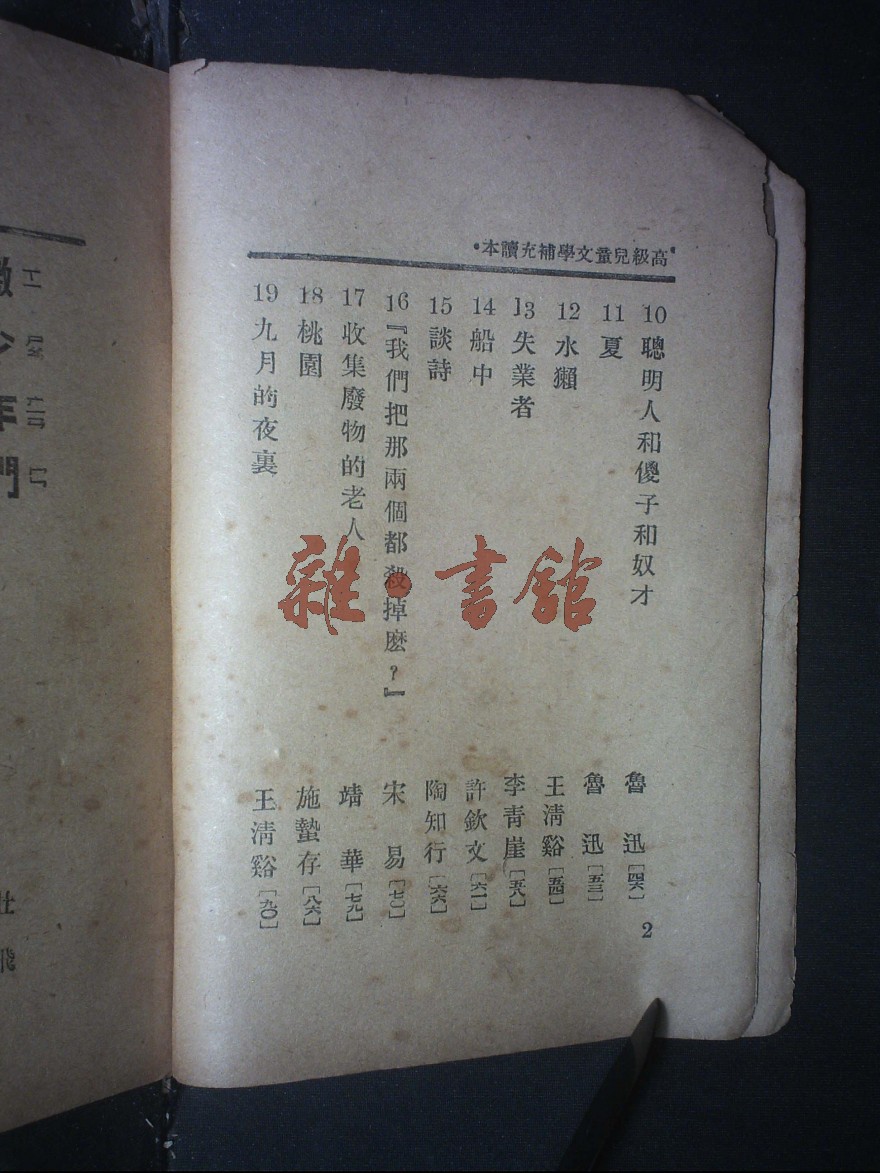 •高級兒童文學補充讀本•
10 聰明人和傻子和奴才 魯迅[四六]
11 夏 魯迅[五三]
12 水獺 王清谿[五四]
13 失業者 李青崖[五八]
14 船中 許欽文[六一]
15 談詩 陶知行[六六]
16 『我們把那兩個都殺掉麽？』 宋易[七〇]
17 收集廢物的老人 靖華[七九]
18 桃園 施蟄存[八六]
19 九月的夜裏 王清谿[九〇]
2
雜·書館
少年們
飛